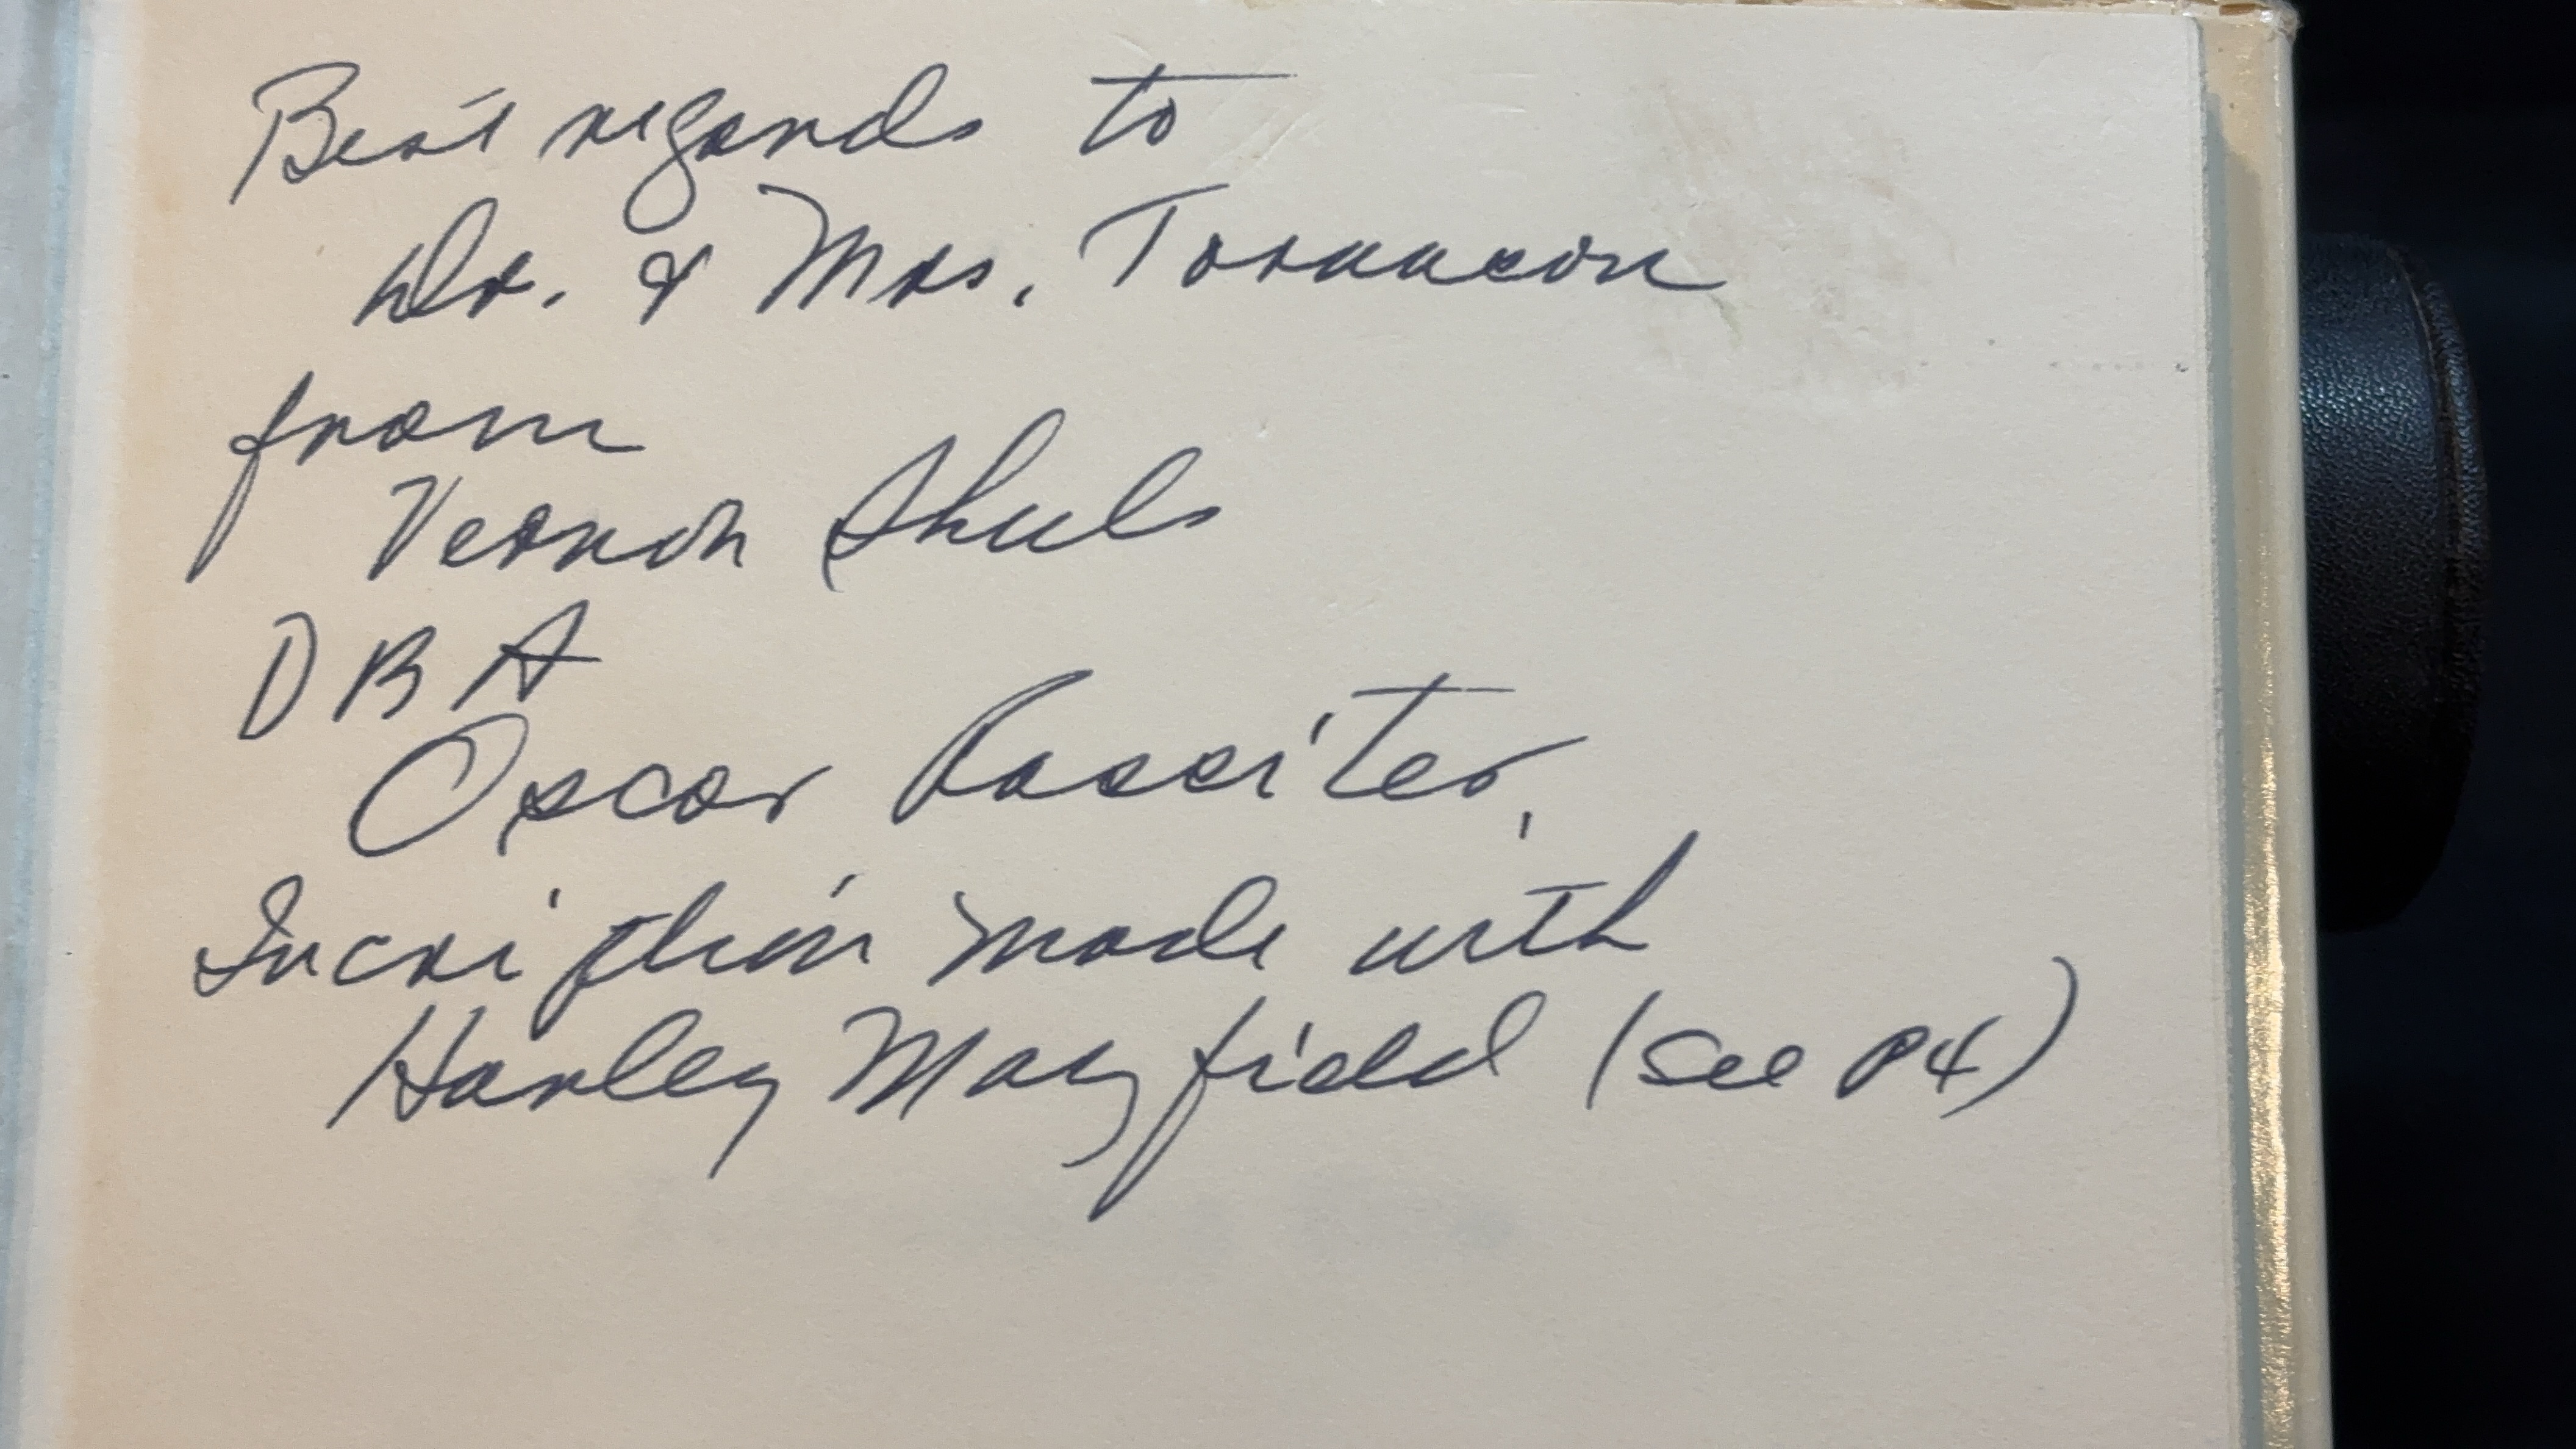 Best regards to
Dr. & Mrs.
from
Vernon Skeels
DBA
Oscar Rossiter,
Incription made with
Harley Mayfield (see P4)